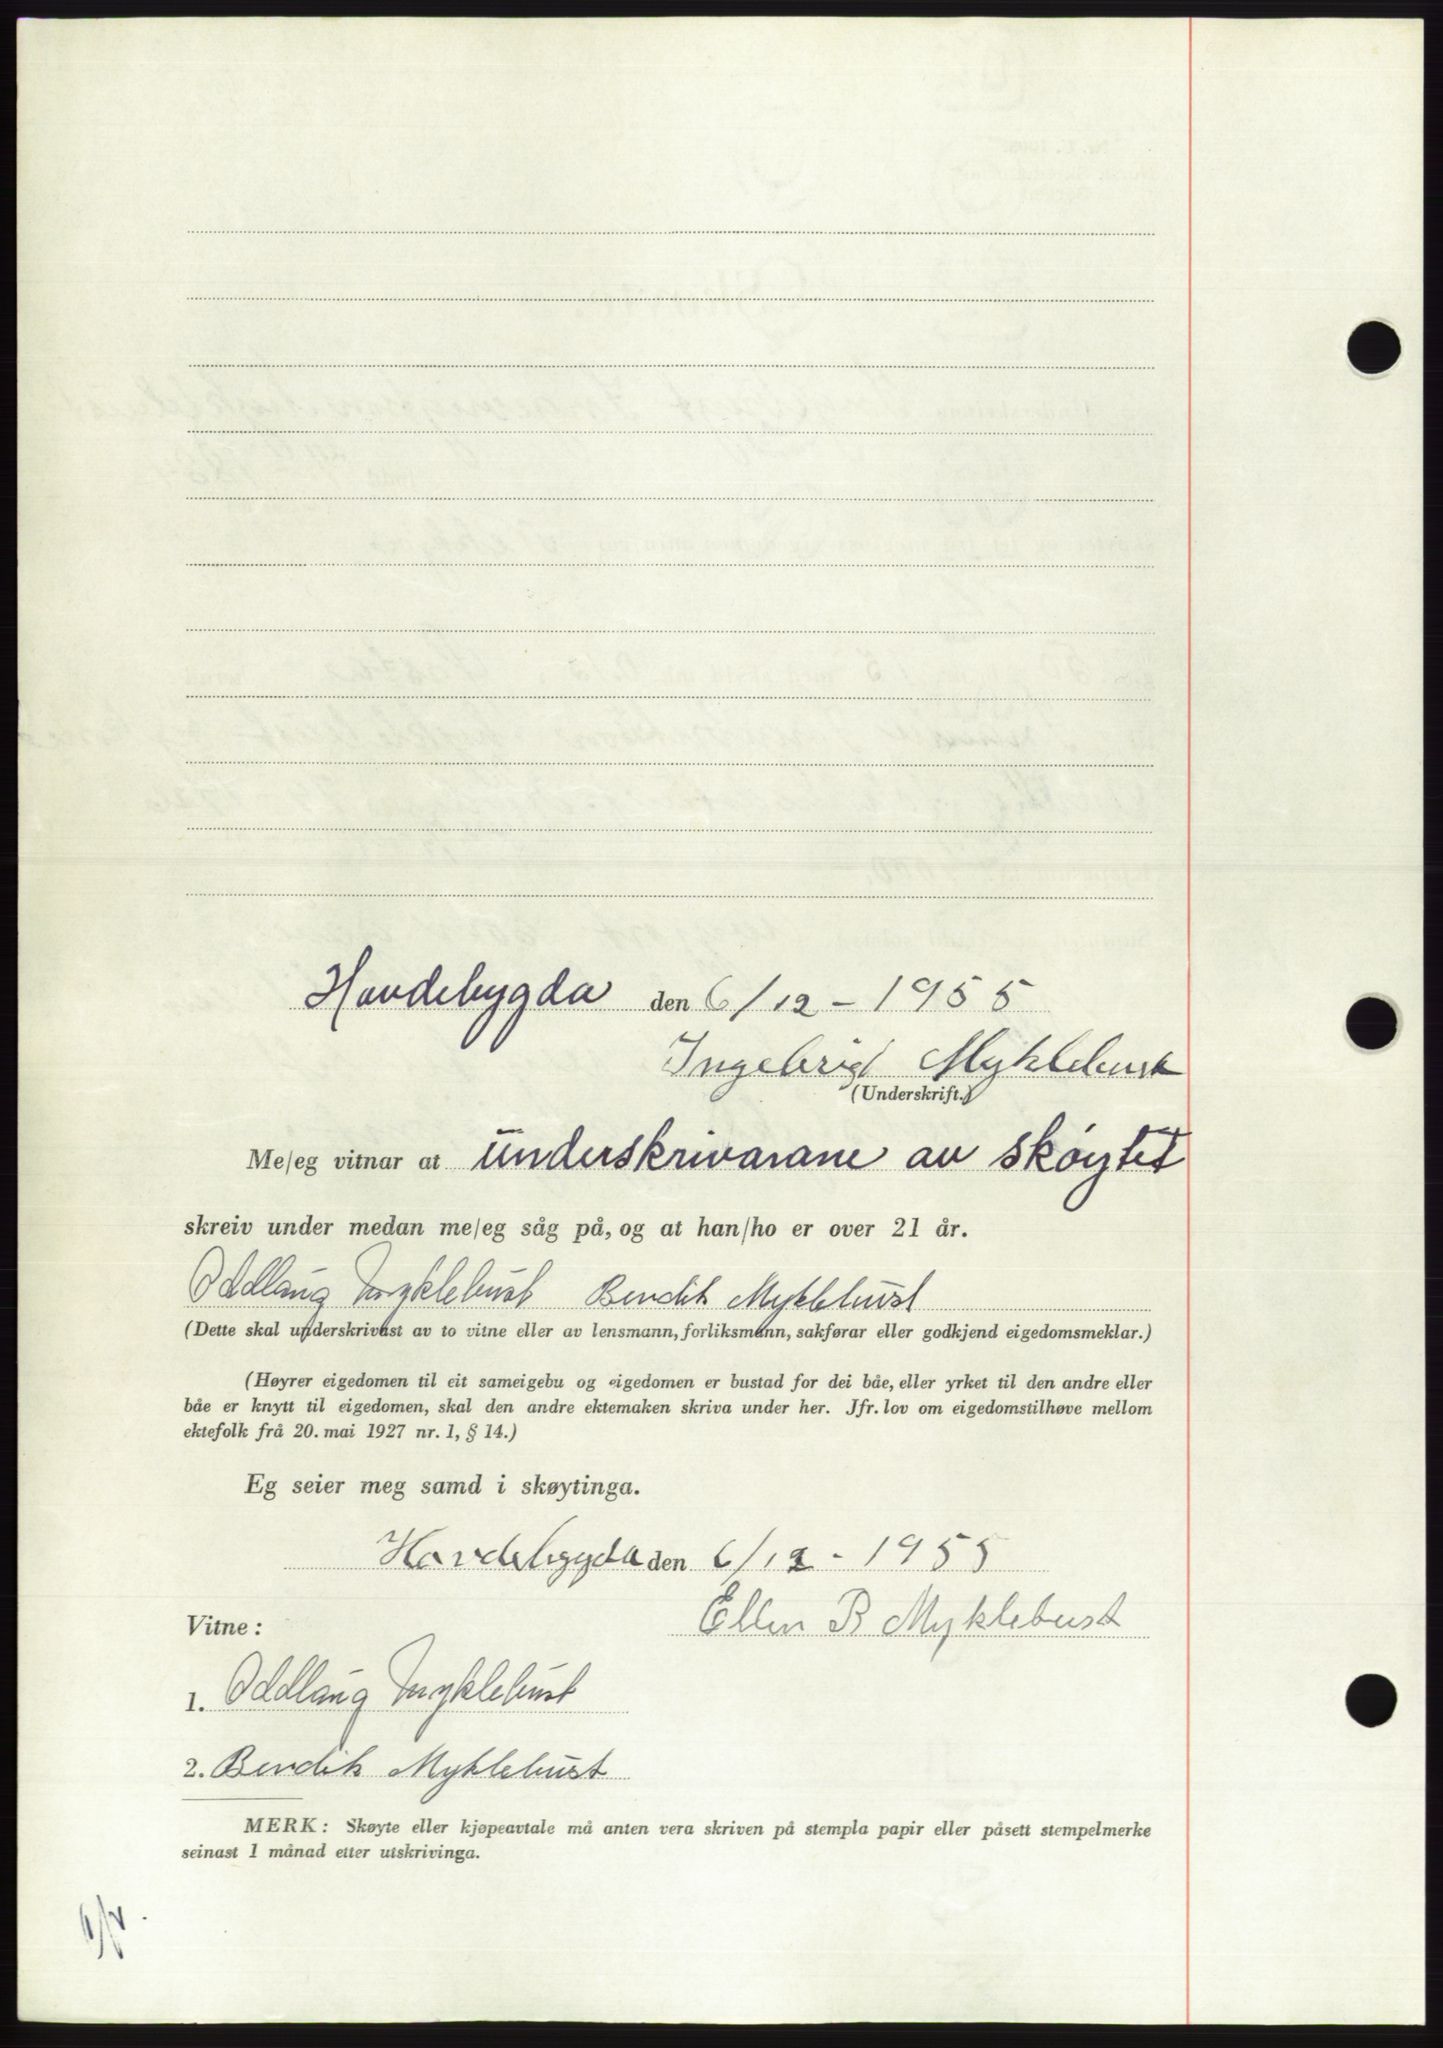 Havdebygda den 6/12 - 1955
Ingebrigt Myklebust
(Underskrift.)
Me/eg vitnar at underskrivarane av skøytet
skreiv under medan me/eg såg på, og at han/ho er over 21 år.
Oddlaug Myklebust Bendik Myklebust
(Dette skal underskrivast av to vitne eller av lensmann, forliksmann, sakførar eller godkjend eigedomsmeklar.)
(Høyrer eigedomen til eit sameigebu og eigedomen er bustad for dei båe, eller yrket til den andre eller
båe er knytt til eigedomen, skal den andre ektemaken skriva under her. Jfr. lov om eigedomstilhøve mellom
ektefolk frå 20. mai 1927 nr. 1, § 14.)
Eg seier meg samd i skøytinga.
Havdebygda den 6/12 - 1955
Ellen B Myklebust
Vitne:
1. Oddlaug Myklebust
2. Bendik Myklebust
MERK: Skøyte eller kjøpeavtale må anten vera skriven på stempla papir eller påsett stempelmerke
seinast 1 månad etter utskrivinga.